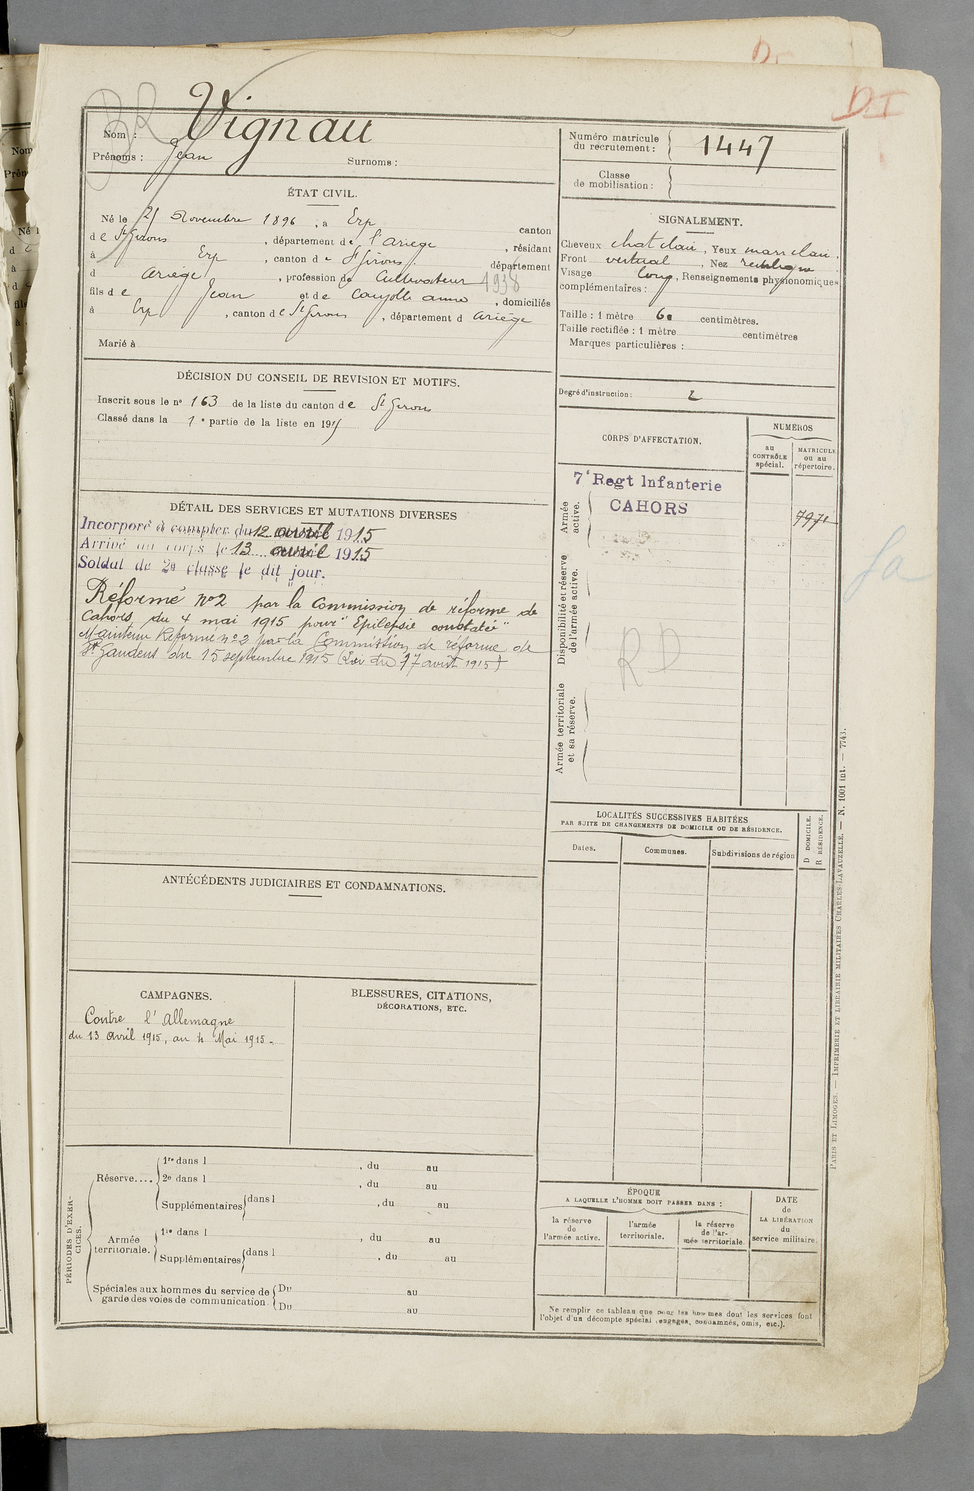 D I
BR
Nom : Vignau
Prénoms : Jean
Surnoms :
Numéro matricule
du recrutement : 1447
Classe
de mobilisation :
ÉTAT CIVIL.
Né le 21 Novembre 1896, à Erp canton
de St Girons, département de l'Ariège, résidant
à Erp, canton de St Girons, département
d Ariège, profession de Cultivateur 1938
fils de Jean et de Coujolle anna, domiciliés
à Erp, canton de St Girons, département d Ariège
Marié à
SIGNALEMENT.
Cheveux chat clair, Yeux marr clair.
Front vertical, Nez rectiligne
Visage long, Renseignements physionomiques
complémentaires :
Taille : 1 mètre 60 centimètres.
Taille rectifiée : 1 mètre centimètres
Marques particulières :
Degré d'instruction : 2
DÉCISION DU CONSEIL DE REVISION ET MOTIFS.
Inscrit sous le nº 163 de la liste du canton de St Girons
Classé dans la 1e partie de la liste en 191
CORPS D'AFFECTATION.
NUMÉROS
au
CONTRÔLE
spécial.
MATRICULE
ou au
répertoire.
Armée
active.
7e Regt Infanterie
CAHORS
7971
Disponibilité et réserve
de l'armée active.
RD
Armée territoriale
et sa réserve.
DÉTAIL DES SERVICES ET MUTATIONS DIVERSES
Incorporé à compter du 12 avril 1915
Arrivé au corps le 13 avril 1915
Soldat de 2e classe le dit jour.
Réformé nº2 par la commission de réforme de
Cahors du 4 mai 1915 pour "Epilepsie constatée"
Maintenu Réformé nº2 par la Commission de réforme de
St Gaudens du 15 septembre 1915 (Loi du 17 avril 1915)
LOCALITÉS SUCCESSIVES HABITÉES
PAR SUITE DE CHANGEMENTS DE DOMICILE OU DE RÉSIDENCE.
Dates.
Communes.
Subdivisions de région
D DOMICILE.
R RÉSIDENCE.
ANTÉCÉDENTS JUDICIAIRES ET CONDAMNATIONS.
CAMPAGNES.
Contre l'Allemagne
du 13 Avril 1915, au 4 Mai 1915.
BLESSURES, CITATIONS,
DÉCORATIONS, ETC.
PÉRIODES D'EXER-
CICES.
Réserve....
1re dans l , du au
2e dans l , du au
Supplémentaires dans l , du au
Armée
territoriale.
1re dans l , du au
Supplémentaires dans l , du au
Spéciales aux hommes du service de
garde des voies de communication.
Du au
Du au
ÉPOQUE
A LAQUELLE L'HOMME DOIT PASSER DANS :
la réserve
de
l'armée active.
l'armée
territoriale.
la réserve
de l'ar-
mée territoriale.
DATE
de
LA LIBÉRATION
du
service militaire.
Ne remplir ce tableau que pour les hommes dont les services font
l'objet d'un décompte spécial (engagés, condamnés, omis, etc.).
PARIS ET LIMOGES. — IMPRIMERIE ET LIBRAIRIE MILITAIRES CHARLES-LAVAUZELLE. — N. 1001 int. — 7743.